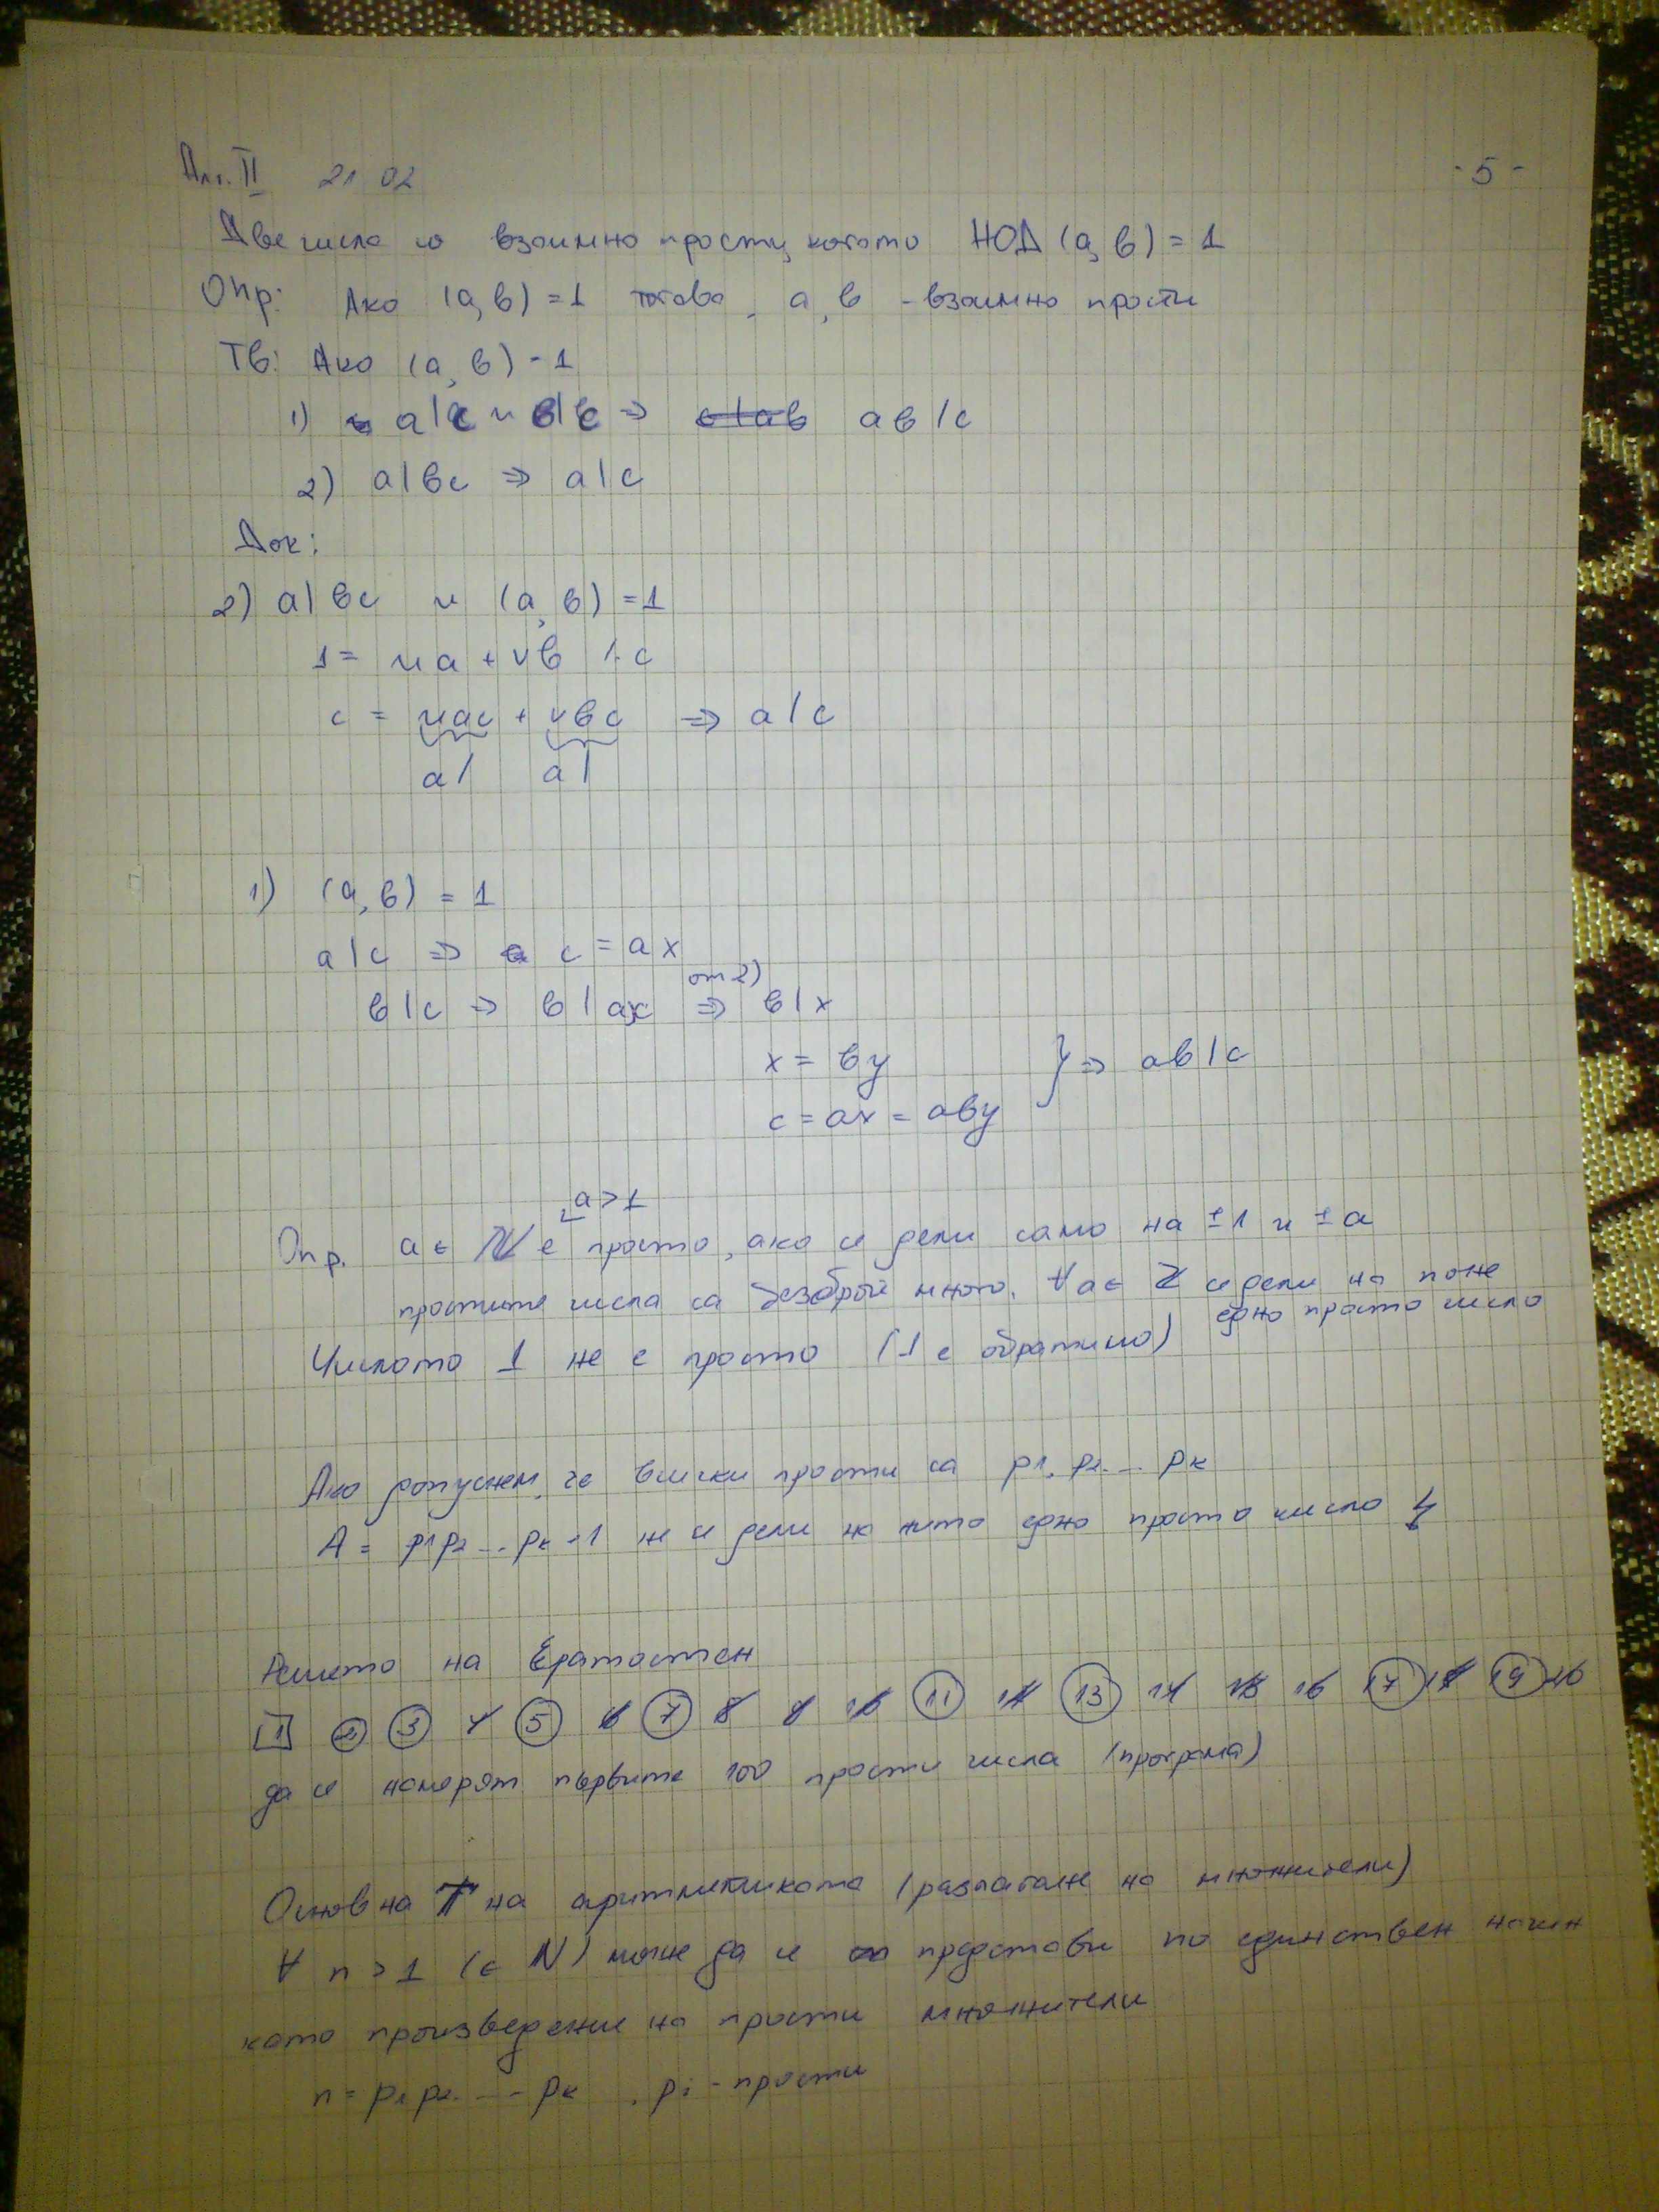 Алг. II 21.02 -5-
Две числа са взаимно прости, когато НОД (a, b) = 1
Опр: Ако (a, b) = 1 тогава, a, b - взаимно прости
Тв: Ако (a, b) = 1
1) a|c и b|c ⇒ c|ab ab|c
2) a|bc ⇒ a|c
Док:
2) a|bc и (a, b) = 1
1 = ua + vb /. c
c = uac + vbc ⇒ a|c
a| a|
1) (a, b) = 1
a|c ⇒ c = ax
от 2)
b|c ⇒ b|ax ⇒ b|x
x = by
} ⇒ ab|c
c = ax = aby
a > 1
Опр. a ∈ N е просто, ако се дели само на ±1 и ±a
простите числа са безброй много. ∀a ∈ Z се дели на поне
едно просто число
Числото 1 не е просто (1 е обратимо)
Ако допуснем, че всички прости са p1, p2 ... pk
A = p1p2 ... pk + 1 не се дели на нито едно просто число ↯
Решето на Ератостен
1 2 3 4 5 6 7 8 9 10 11 12 13 14 15 16 17 18 19 20
да се намерят първите 100 прости числа (програма)
Основна Т на аритметиката (разлагане на множители)
∀ n > 1 (∈ N) може да се представи по единствен начин
като произведение на прости множители
n = p1 p2 ... pk , pi - прости